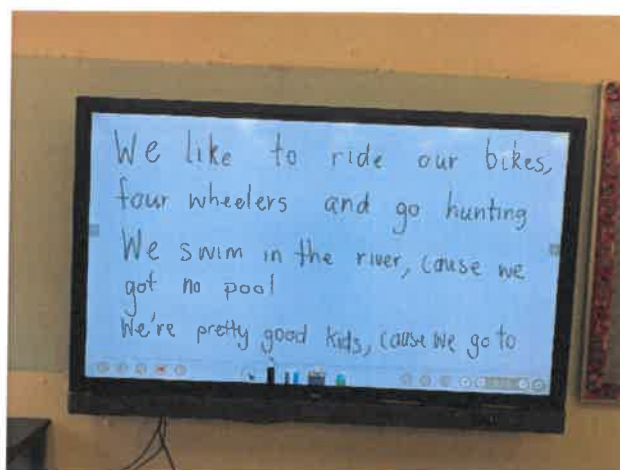 We like to ride our bikes,
four wheelers and go hunting
We swim in the river, cause we
got no pool
We're pretty good kids, cause we go to